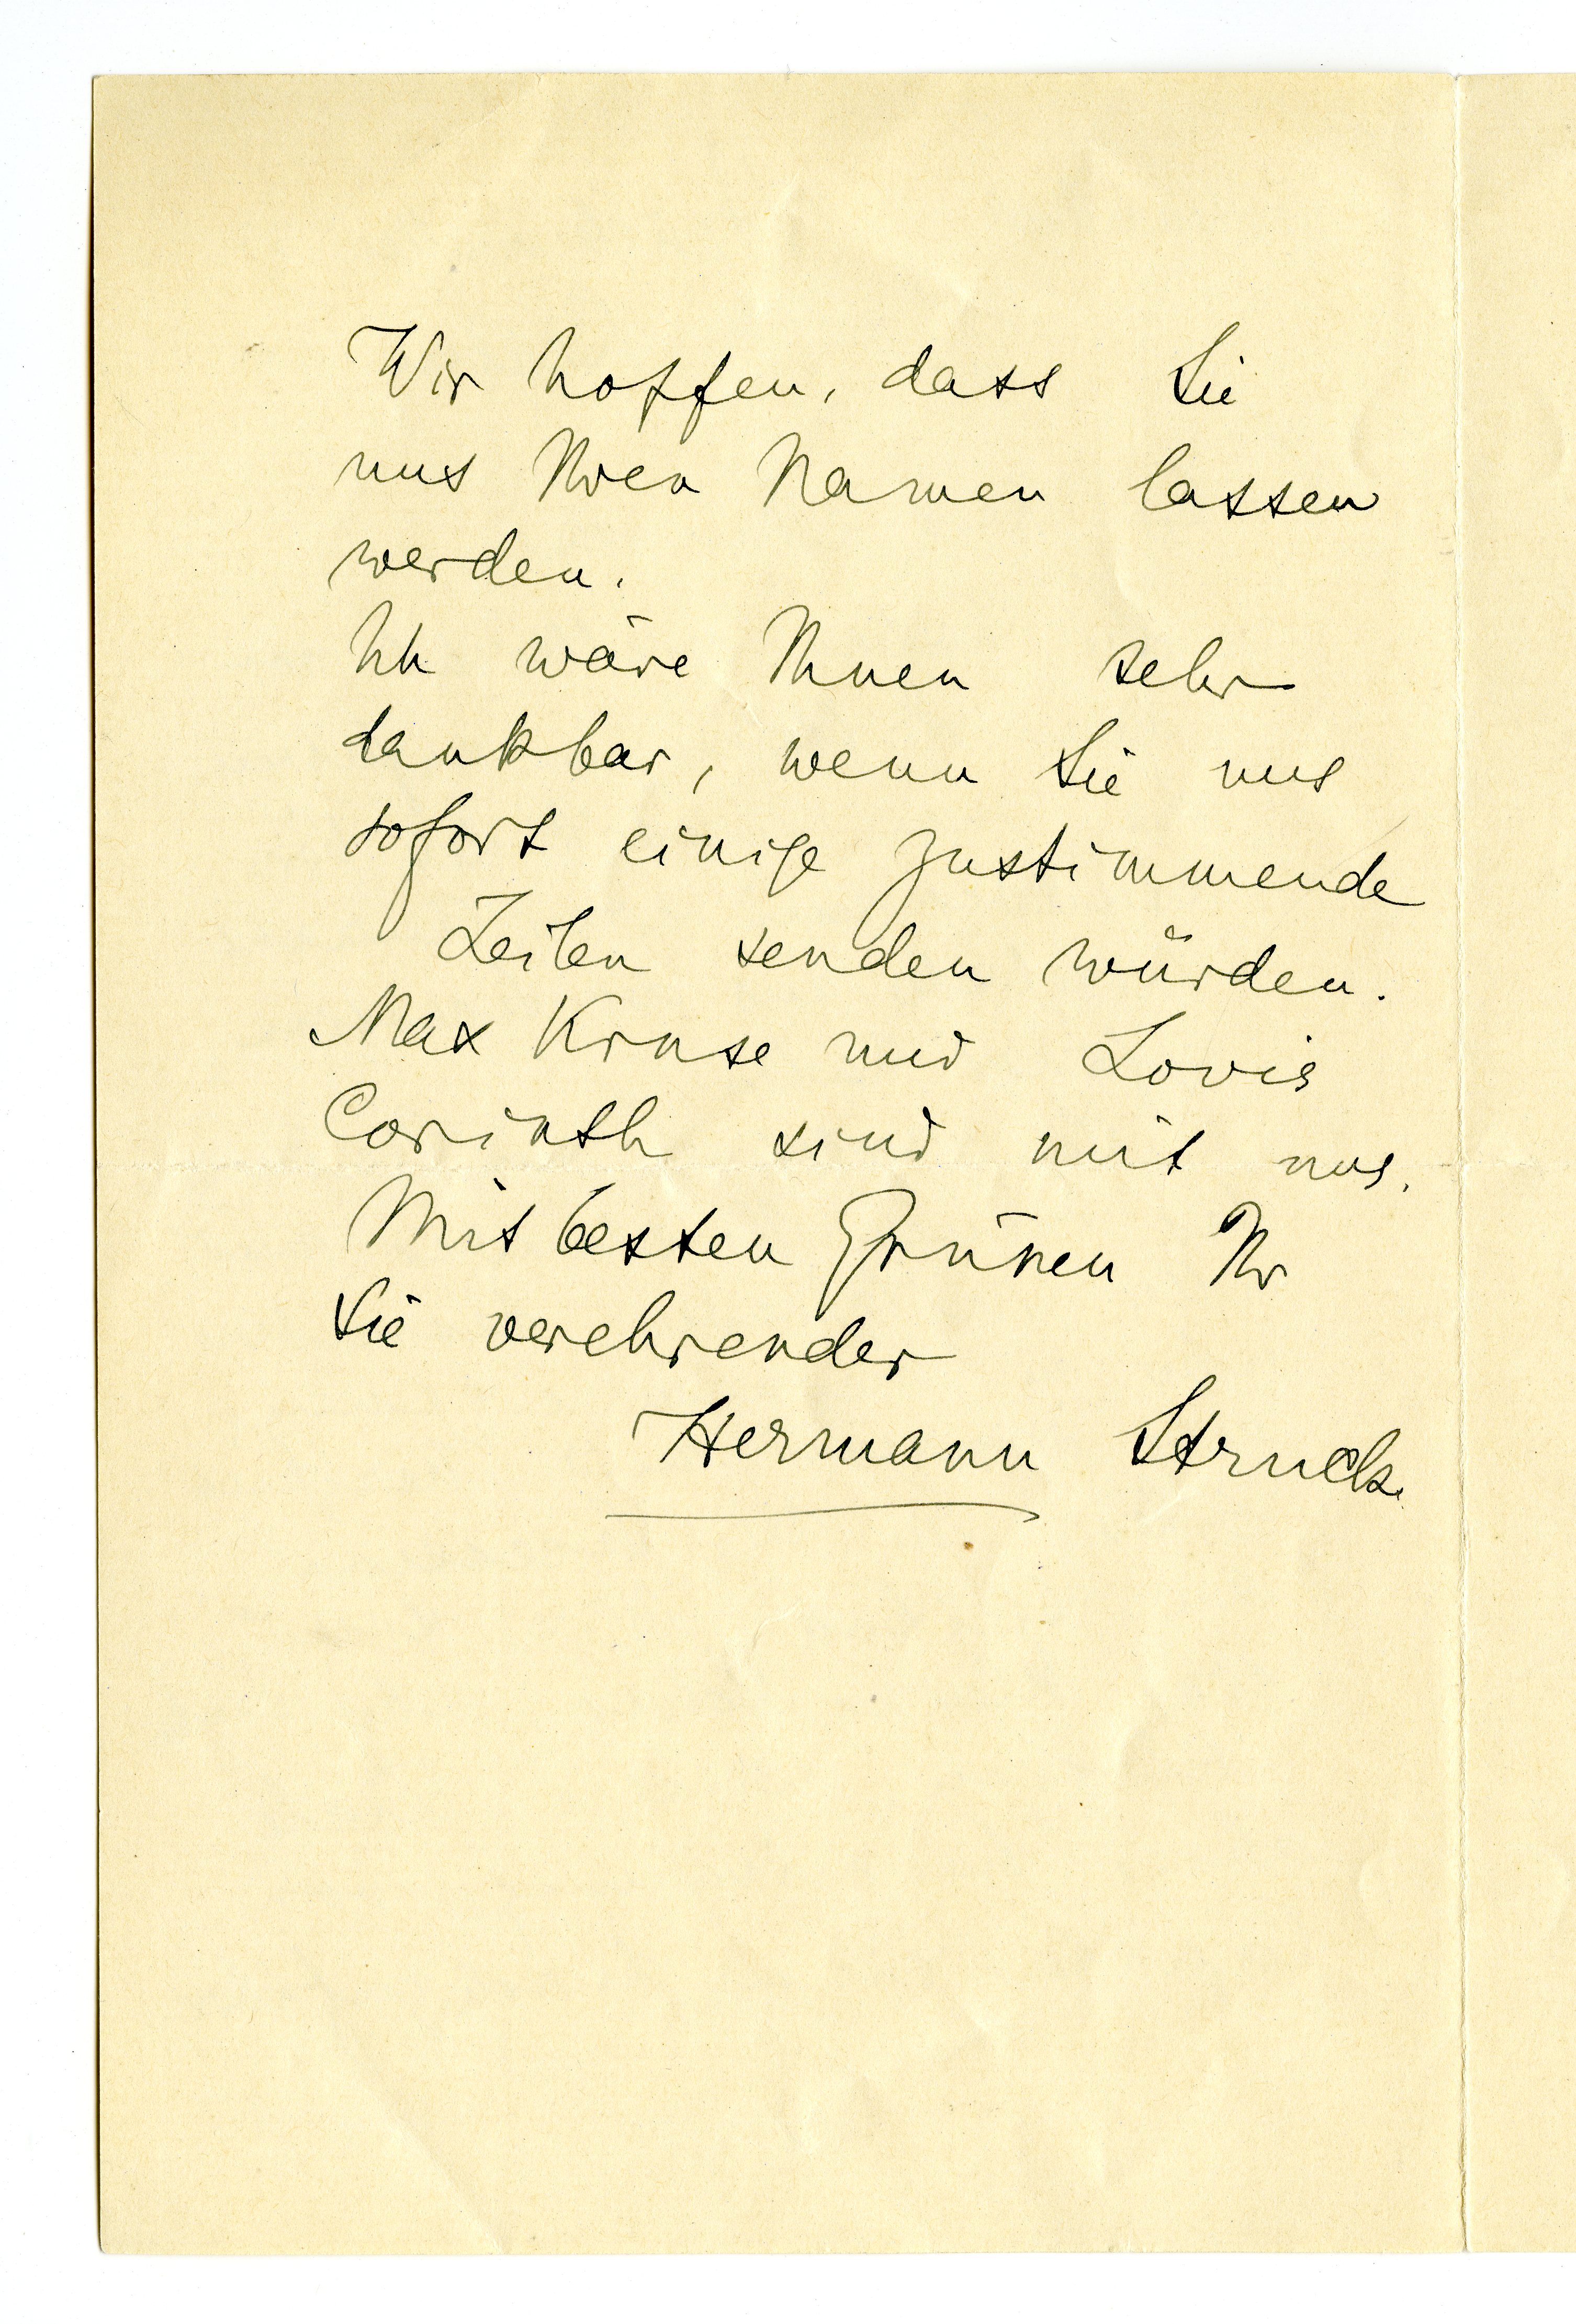 Wir hoffen, dass Sie
uns Ihren Namen lassen
werden.
Ich wäre Ihnen sehr
dankbar, wenn Sie uns
sofort einige zustimmende
Zeilen senden würden.
Max Kruse und Lovis
Corinth sind mit uns.
Mit besten Grüßen Ihr
Sie verehrender
Hermann Struck.